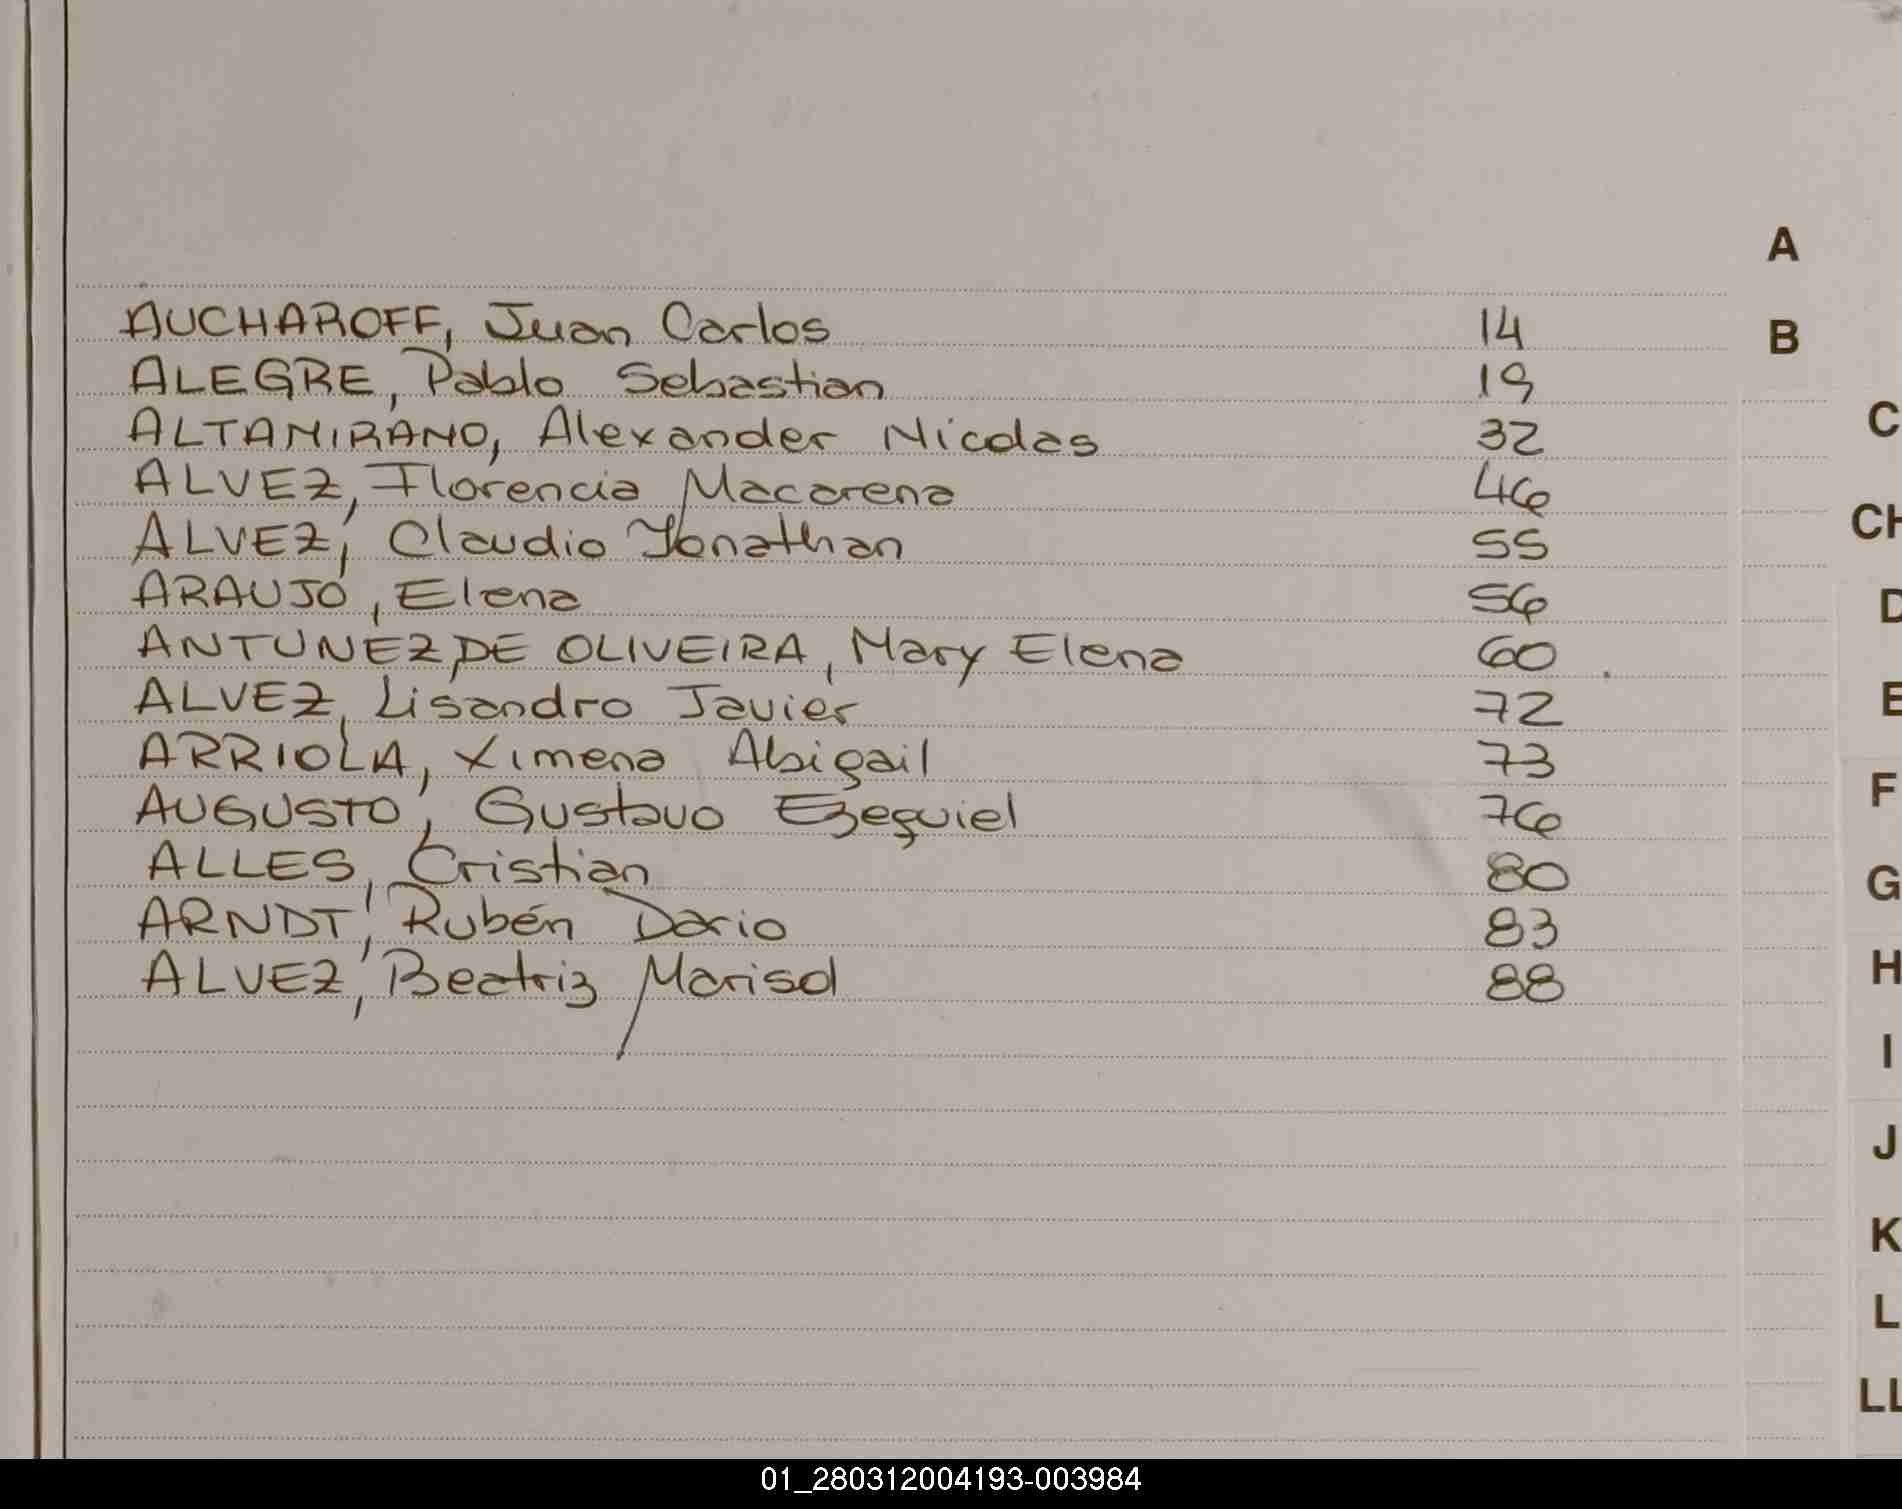 A
AUCHAROFF, Juan Carlos 14
B
ALEGRE, Pablo Sebastian 19
C
ALTAMIRANO, Alexander Nicolas 32
ALVEZ, Florencia Macarena 46
CH
ALVEZ, Claudio Yonathan 55
ARAUJO, Elena 56
D
ANTUNEZ DE OLIVEIRA, Mary Elena 60
E
ALVEZ, Lisandro Javier 72
ARRIOLA, Ximena Abigail 73
F
AUGUSTO, Gustavo Ezequiel 76
ALLES, Cristian 80
G
ARNDT, Rubén Dario 83
H
ALVEZ, Beatriz Marisol 88
I
J
K
L
LL
01_280312004193-003984